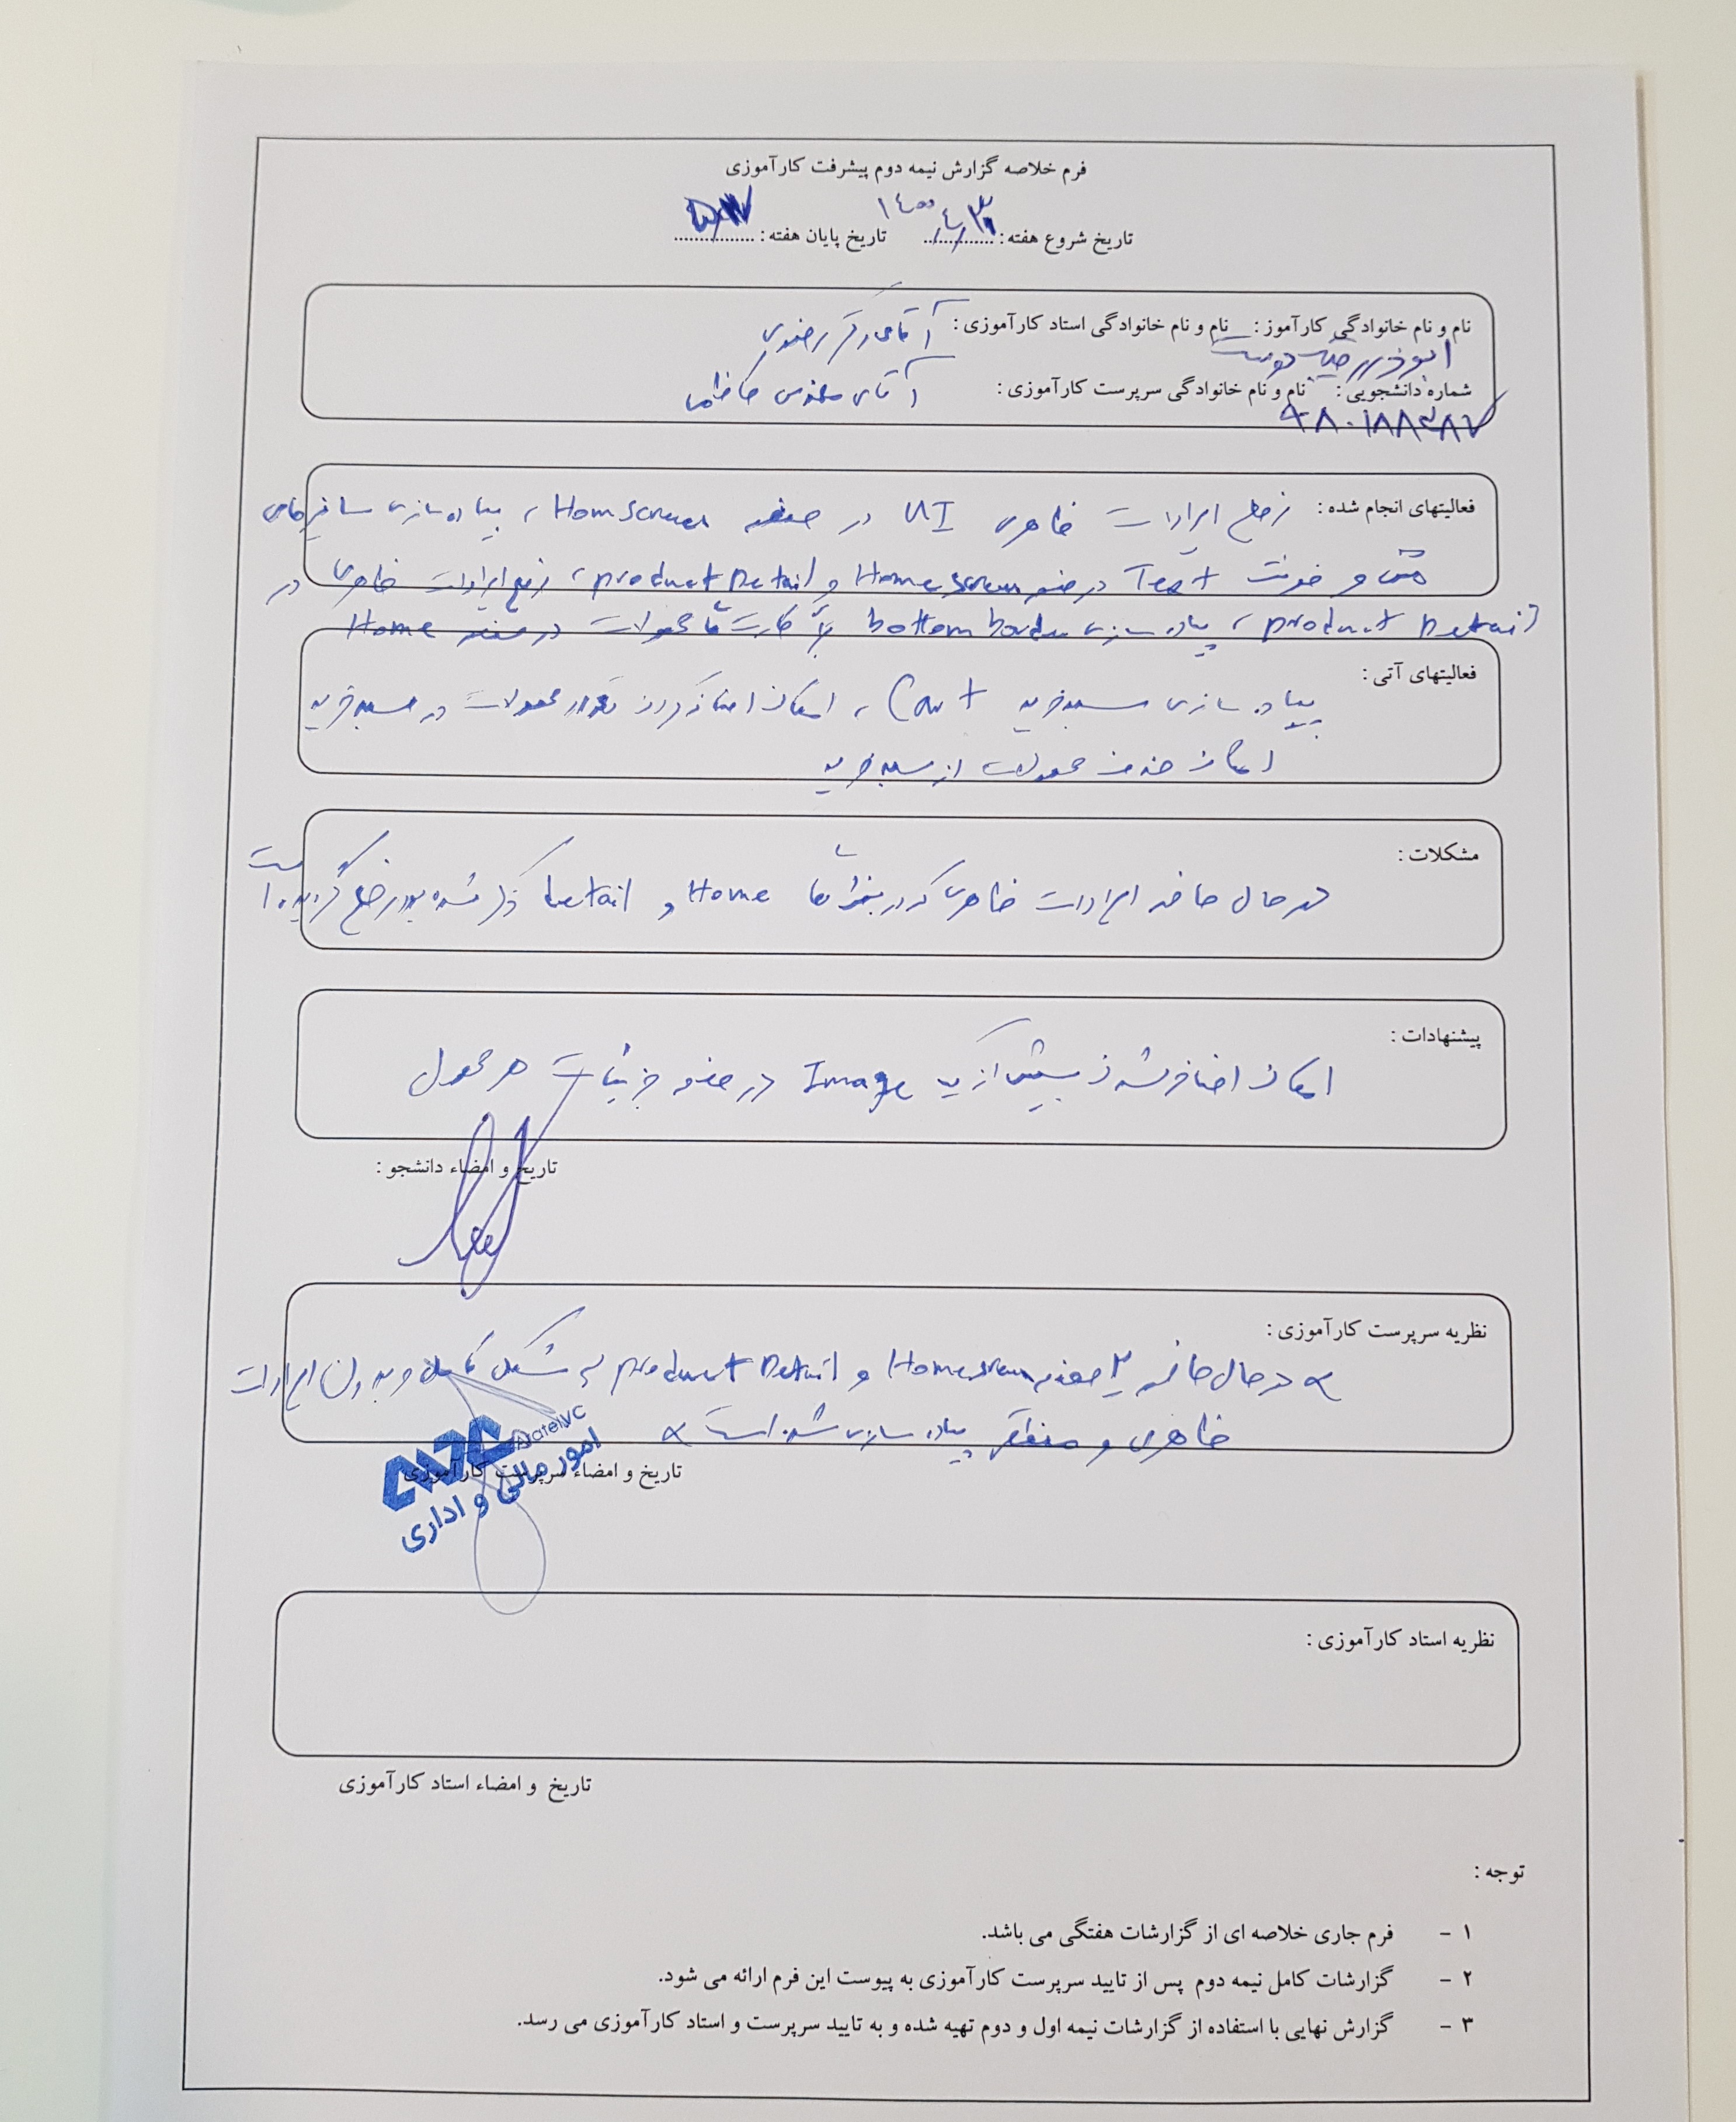 فرم خلاصه گزارش نیمه دوم پیشرفت کارآموزی
تاریخ شروع هفته : ۱۴۰۰ تاریخ پایان هفته :
نام و نام خانوادگی کارآموز : نام و نام خانوادگی استاد کارآموزی : آقای دکتر رضوی
ابوذر
شماره دانشجویی : نام و نام خانوادگی سرپرست کارآموزی : آقای مهندس کاظمی
فعالیتهای انجام شده : رفع ایرادات ظاهری UI در صفحه HomScreen ، پیاده سازی سایزهای
متن و فونت Text در صفحه Home screen و product Detail ، رفع ایرادات ظاهری در
product Detail ، پیاده سازی bottom border کارت محصولات در صفحه Home
فعالیتهای آتی :
پیاده سازی سبد خرید Cart ، امکان اضافه کردن تعداد محصولات در سبد خرید
امکان حذف محصولات از سبد خرید
مشکلات :
در حال حاضر ایرادات ظاهری که در بخش ها Home و Detail ذکر شده بود رفع گردیده است
پیشنهادات :
امکان اضافه شدن بیش از یه Image در صفحه جزئیات هر محصول
تاریخ و امضاء دانشجو :
نظریه سرپرست کارآموزی :
در حال حاضر ۲ صفحه Homescreen و product Detail به شکل کامل و بدون ایرادات
ظاهری و منطقی پیاده سازی شده است
AvatelVC
امور مالی و اداری
تاریخ و امضاء سرپرست کارآموزی
نظریه استاد کارآموزی :
تاریخ و امضاء استاد کارآموزی
توجه :
۱ - فرم جاری خلاصه ای از گزارشات هفتگی می باشد.
۲ - گزارشات کامل نیمه دوم پس از تایید سرپرست کارآموزی به پیوست این فرم ارائه می شود.
۳ - گزارش نهایی با استفاده از گزارشات نیمه اول و دوم تهیه شده و به تایید سرپرست و استاد کارآموزی می رسد.